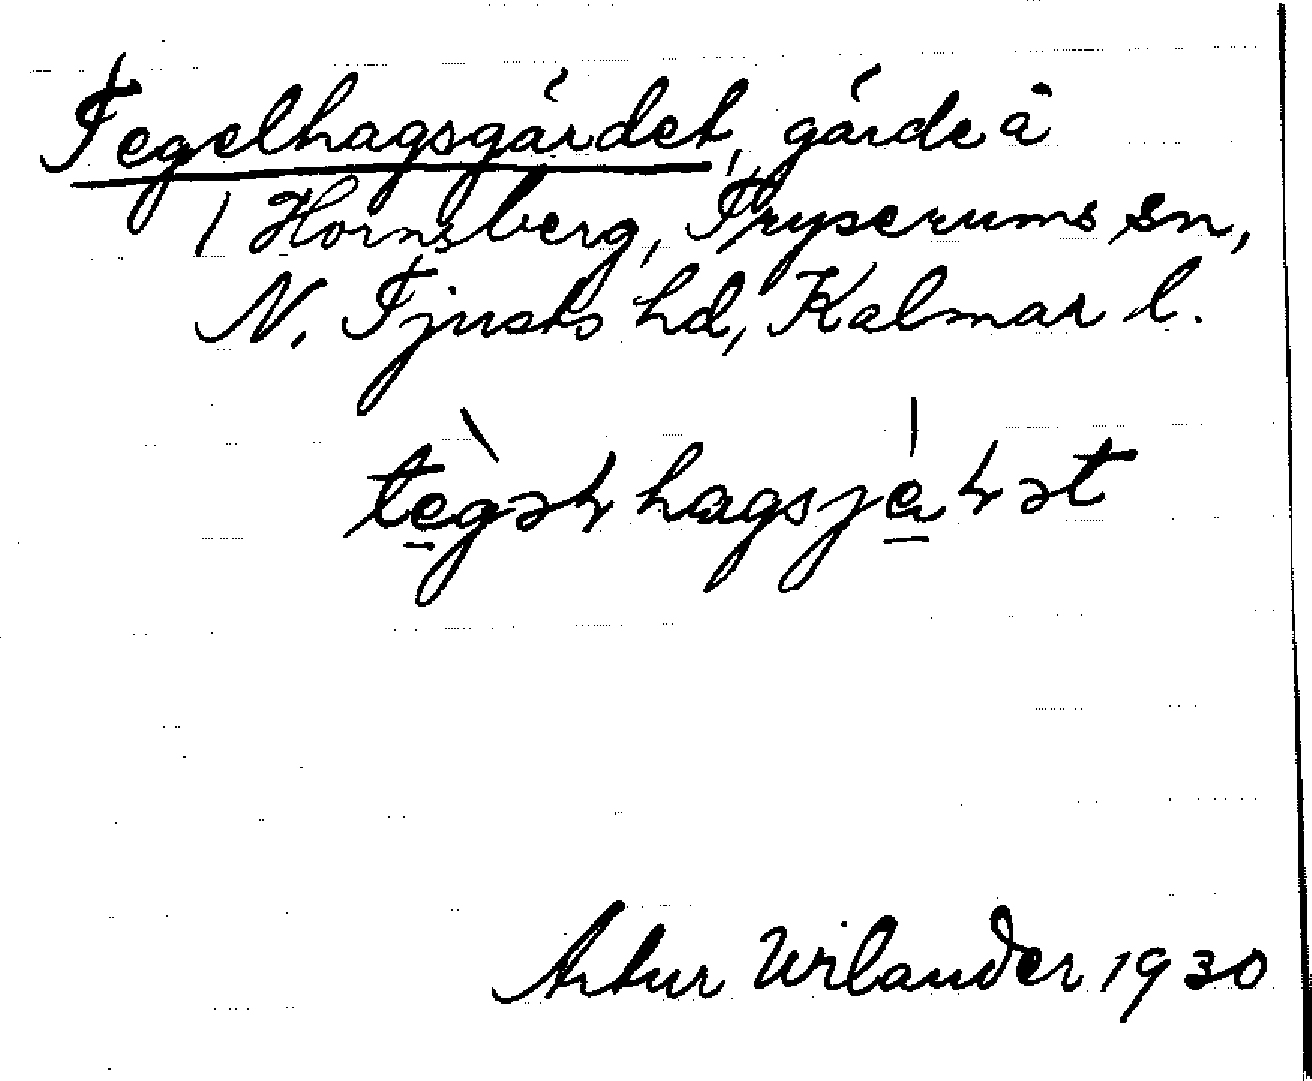 Tegelhagsgärdet, gärde å
1 Hornsberg, Tryserums sn,
N. Tjusts hd, Kalmar l.
Artur Wilander 1930